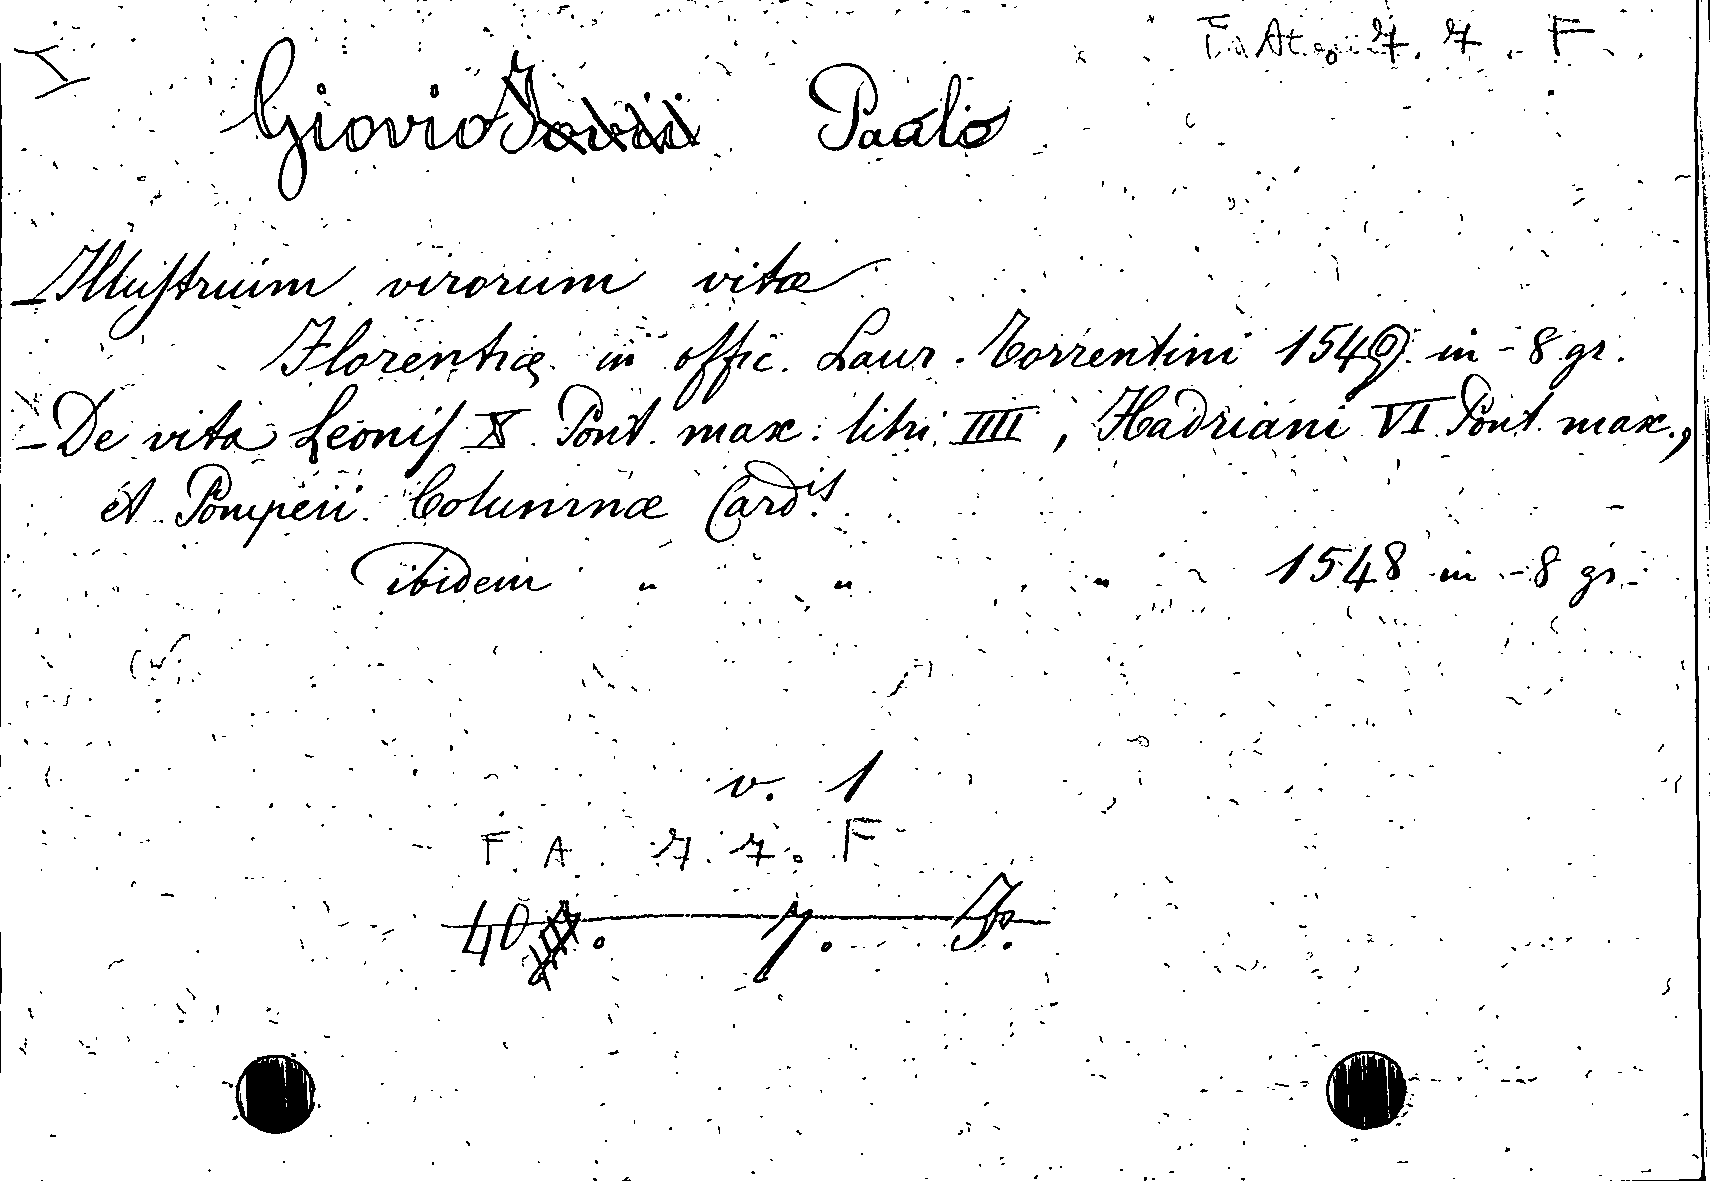 F. A 7. 7. F
Giovio Paolo
- Illustrium virorum vitæ
Florentiæ in offic. Laur. Torrentini 1549 in-8 gr.
- De vita Leonis X Pont. max. libri IIII, Hadriani VI Pont. max.,
et Pompeii Columnæ Card.is
ibidem " " " 1548 in-8 gr.
v. 1
F. A. 7. 7. F
40 . 7. J.